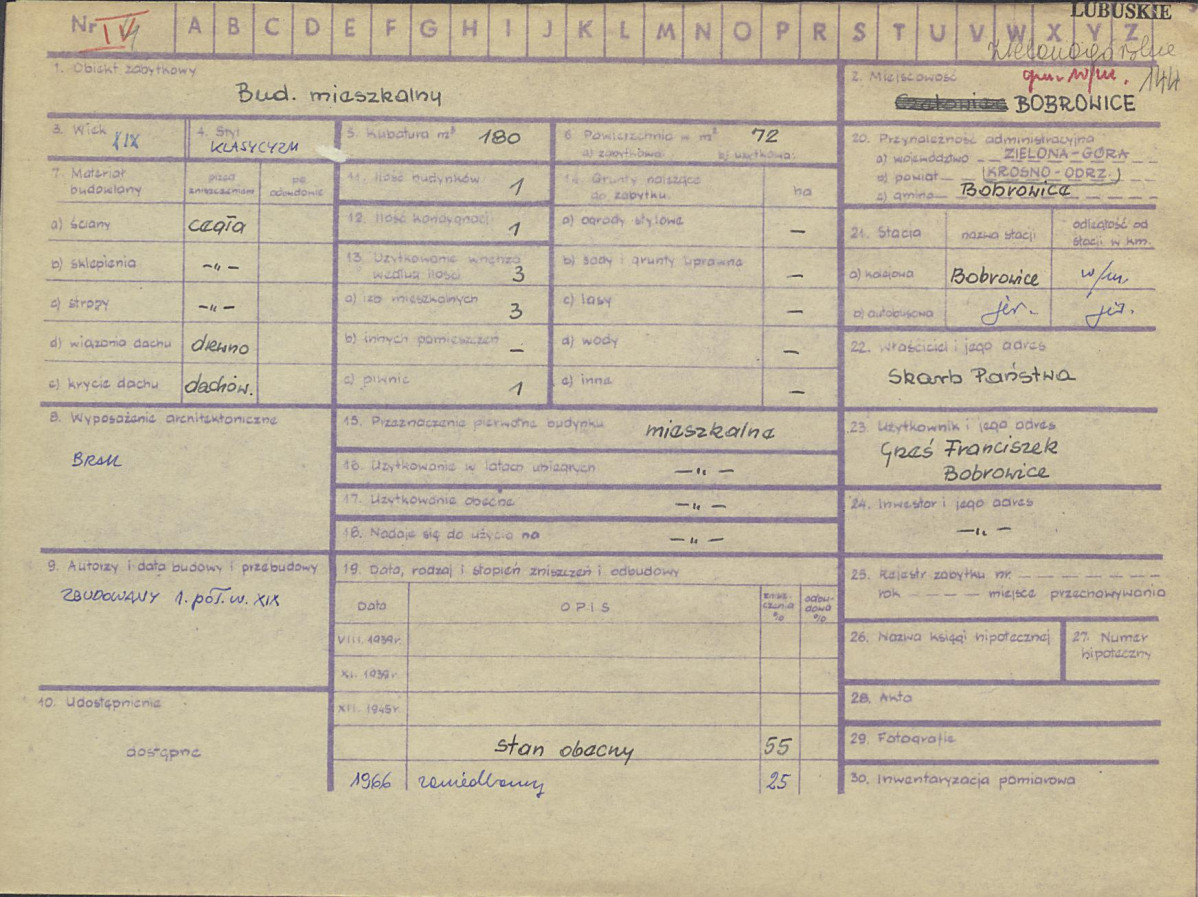 LUBUSKIE
Nr IV A B C D E F G H I J K L M N O P R S T U V W X Y Z
Zielonogórskie
gm. w/m. 144
1. Obiekt zabytkowy
Bud. mieszkalny
2. Miejscowość
BOBROWICE
3. Wiek XIX
4. Styl KLASYCYZM
5. Kubatura m³ 180
6. Powierzchnia w m² 72
a) zabytkowa: b) użytkowa:
7. Materiał budowlany
przed zniszczeniem
po odbudowie
a) ściany cegła
b) sklepienia —„—
c) stropy —„—
d) wiązania dachu drewno
e) krycie dachu dachów.
8. Wyposażenie architektoniczne
BRAK
9. Autorzy i data budowy i przebudowy
ZBUDOWANY 1. poł. w. XIX
10. Udostępnienie
dostępne
11. Ilość budynków 1
12. Ilość kondygnacji 1
13. Użytkowanie wnętrza według ilości 3
a) izb mieszkalnych 3
b) innych pomieszczeń —
c) piwnic 1
14. Grunty należące do zabytku ha
a) ogrody stylowe —
b) sady i grunty uprawne —
c) lasy —
d) wody —
e) inne —
15. Przeznaczenie pierwotne budynku mieszkalne
16. Użytkowanie w latach ubiegłych —„—
17. Użytkowanie obecne —„—
18. Nadaje się do użycia na —„—
19. Data, rodzaj i stopień zniszczeń i odbudowy
Data OPIS zniszczenia % odbudowa %
VIII. 1939r.
XI. 1939r.
XII. 1945r.
stan obecny 55
1966 zaniedbany 25
20. Przynależność administracyjna
a) województwo ZIELONA-GÓRA
b) powiat (KROSNO-ODRZ.)
c) gmina Bobrowice
21. Stacja nazwa stacji odległość od stacji w km.
a) kolejowa Bobrowice w/m.
b) autobusowa jw. jw.
22. Właściciel i jego adres
Skarb Państwa
23. Użytkownik i jego adres
Grześ Franciszek
Bobrowice
24. Inwestor i jego adres
—„—
25. Rejestr zabytku nr.
rok miejsce przechowywania
26. Nazwa księgi hipotecznej
27. Numer hipoteczny
28. Akta
29. Fotografie
30. Inwentaryzacja pomiarowa